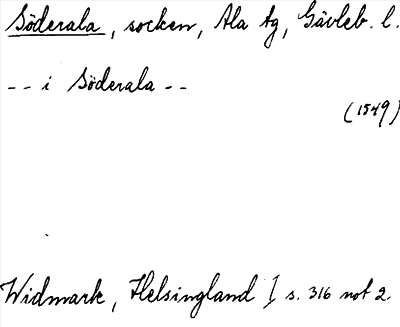 Söderala, socken, Ala tg, Gävleb. l.
-- i Söderala --
(1549)
Widmark, Helsingland I s. 316 not 2.